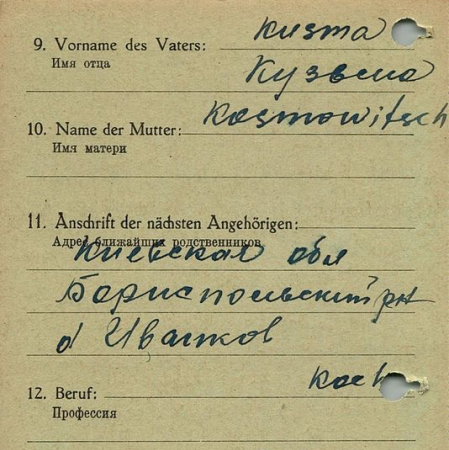 9. Vorname des Vaters: Kusma
Имя отца
Кузьма
10. Name der Mutter: Kosmowitsch
Имя матери
11. Anschrift der nächsten Angehörigen:
Адрес ближайших родственников
Киевская обл
Бориспольский рн
д Иванков
12. Beruf: Koch
Профессия